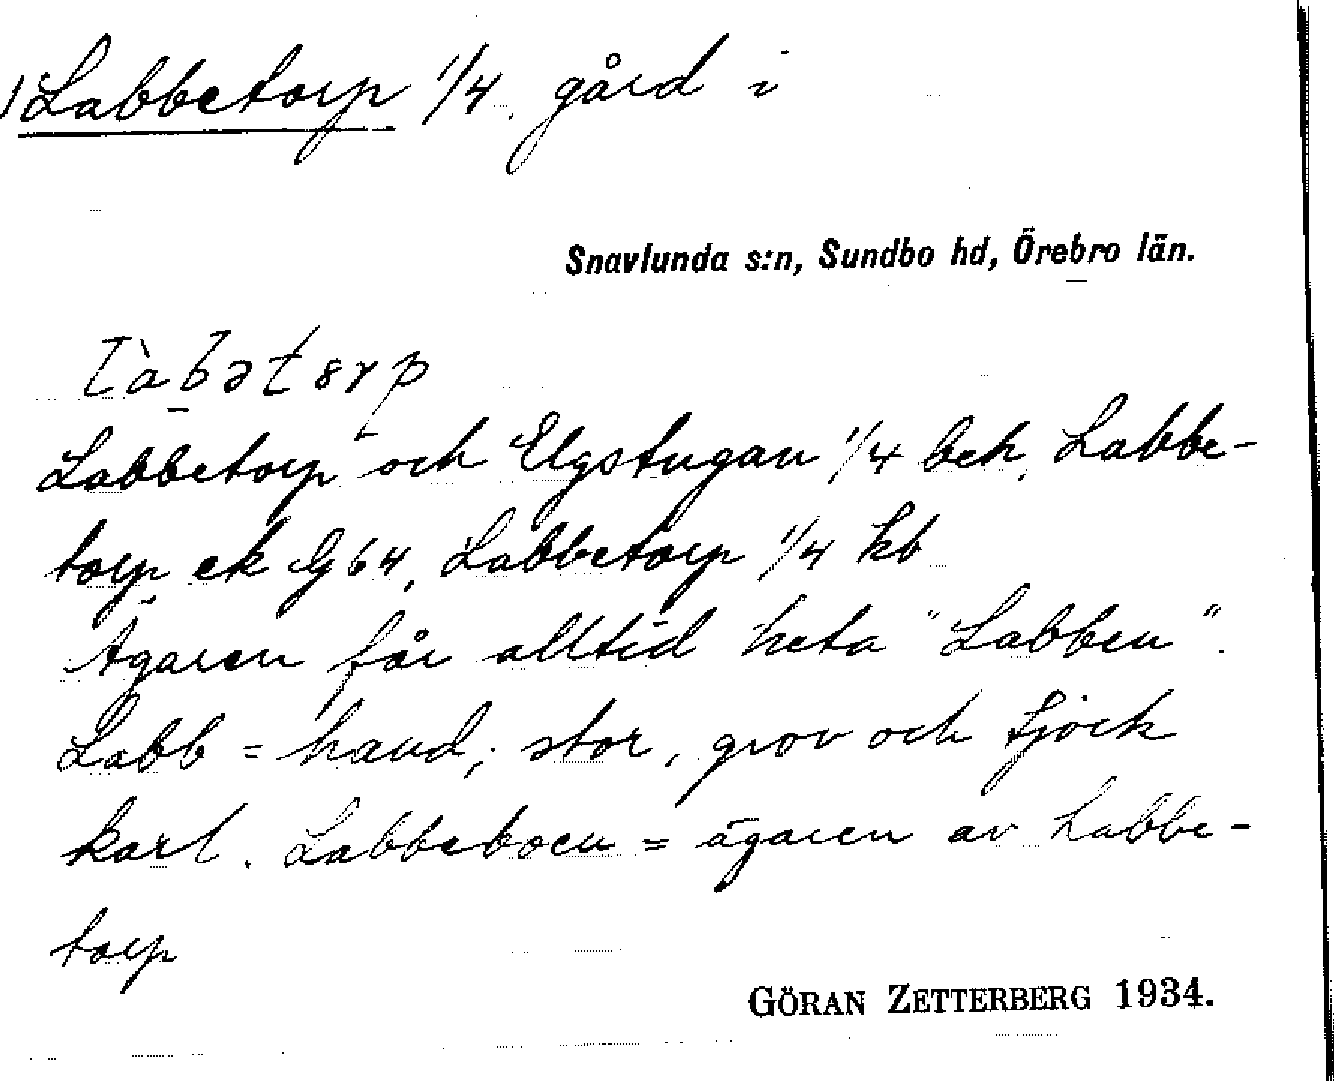 Labbetorp 1/4 gård i
Snavlunda s:n, Sundbo hd, Örebro län.
làbətɵrp
Labbetorp och Elgstugan 1/4 beh. Labbe-
torp ek G64, Labbetorp 1/4 kb
Ägaren får alltid heta "Labben".
Labb = hand; stor, grov och tjock
karl. Labbeboen = ägaren av Labbe-
torp
GÖRAN ZETTERBERG 1934.